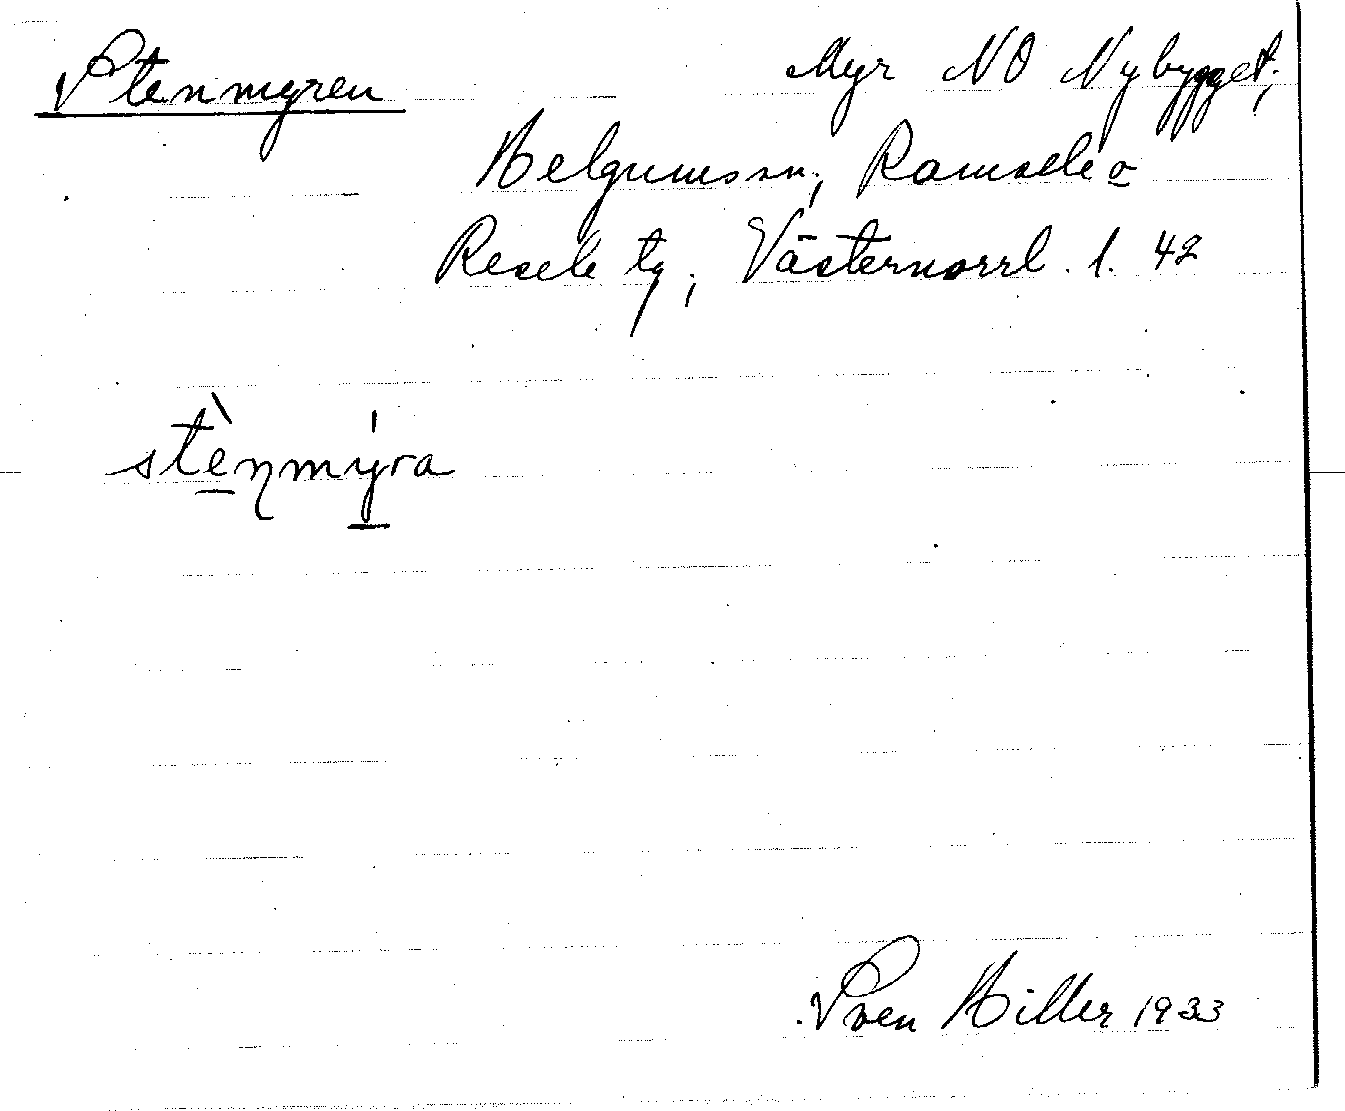 Stenmyren Myr NO Nybygget,
Helgumssn, Ramsele o
Resele tg, Västernorrl. l. 42
stèn̥mýra
Sven Hiller 1933